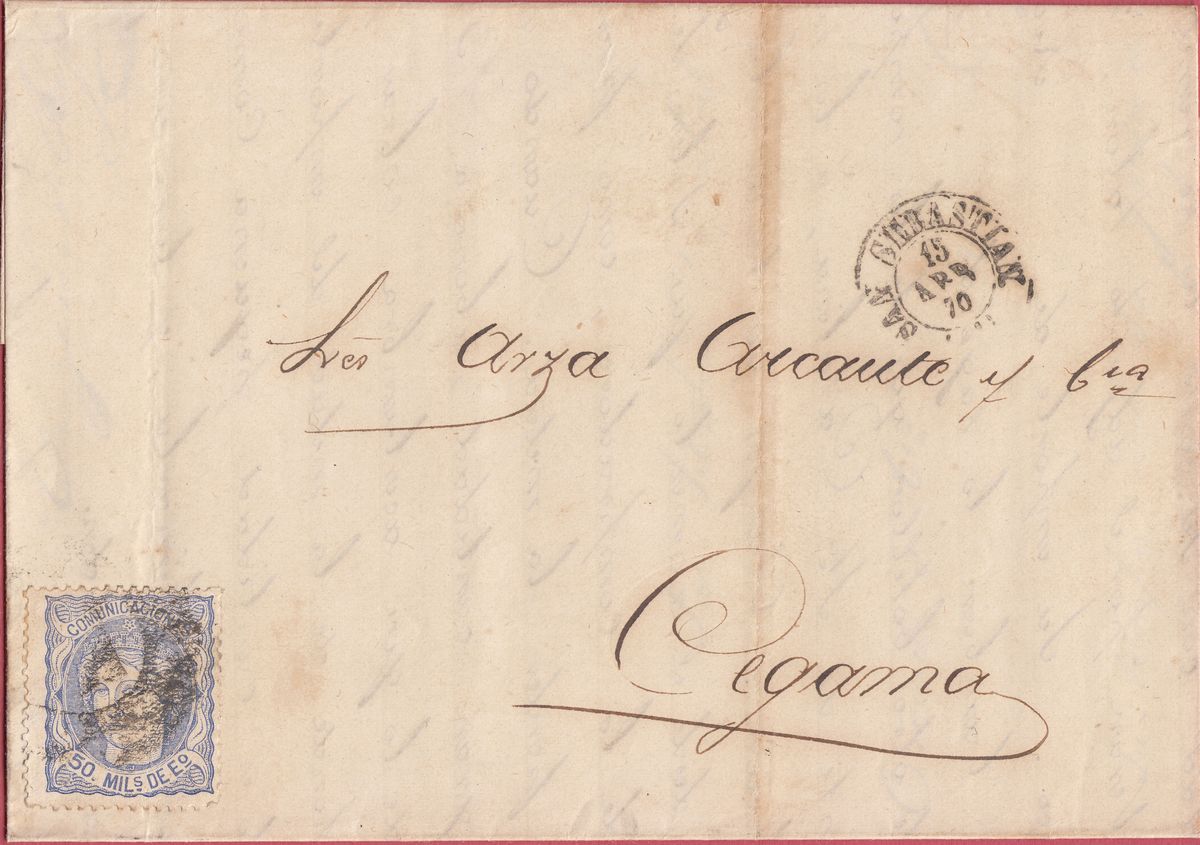 SAN SEBASTIAN
15
ABR
70
Sres Arza Arcaute y Cia
Cegama
COMUNICACIONES
50. MILS. DE Eo.